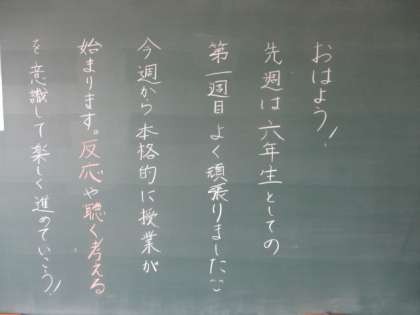 おはよう!
先週は六年生としての
第一週目よく頑張りました
今週から本格的に授業が
始まります。反応や聴く考える
を意識して楽しく進めていこう!